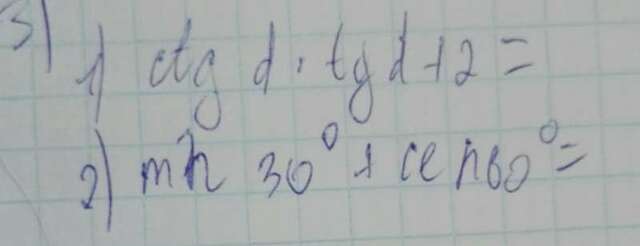 3)
1) ctg d · tg d + 2 =
2) 30° + 60° =